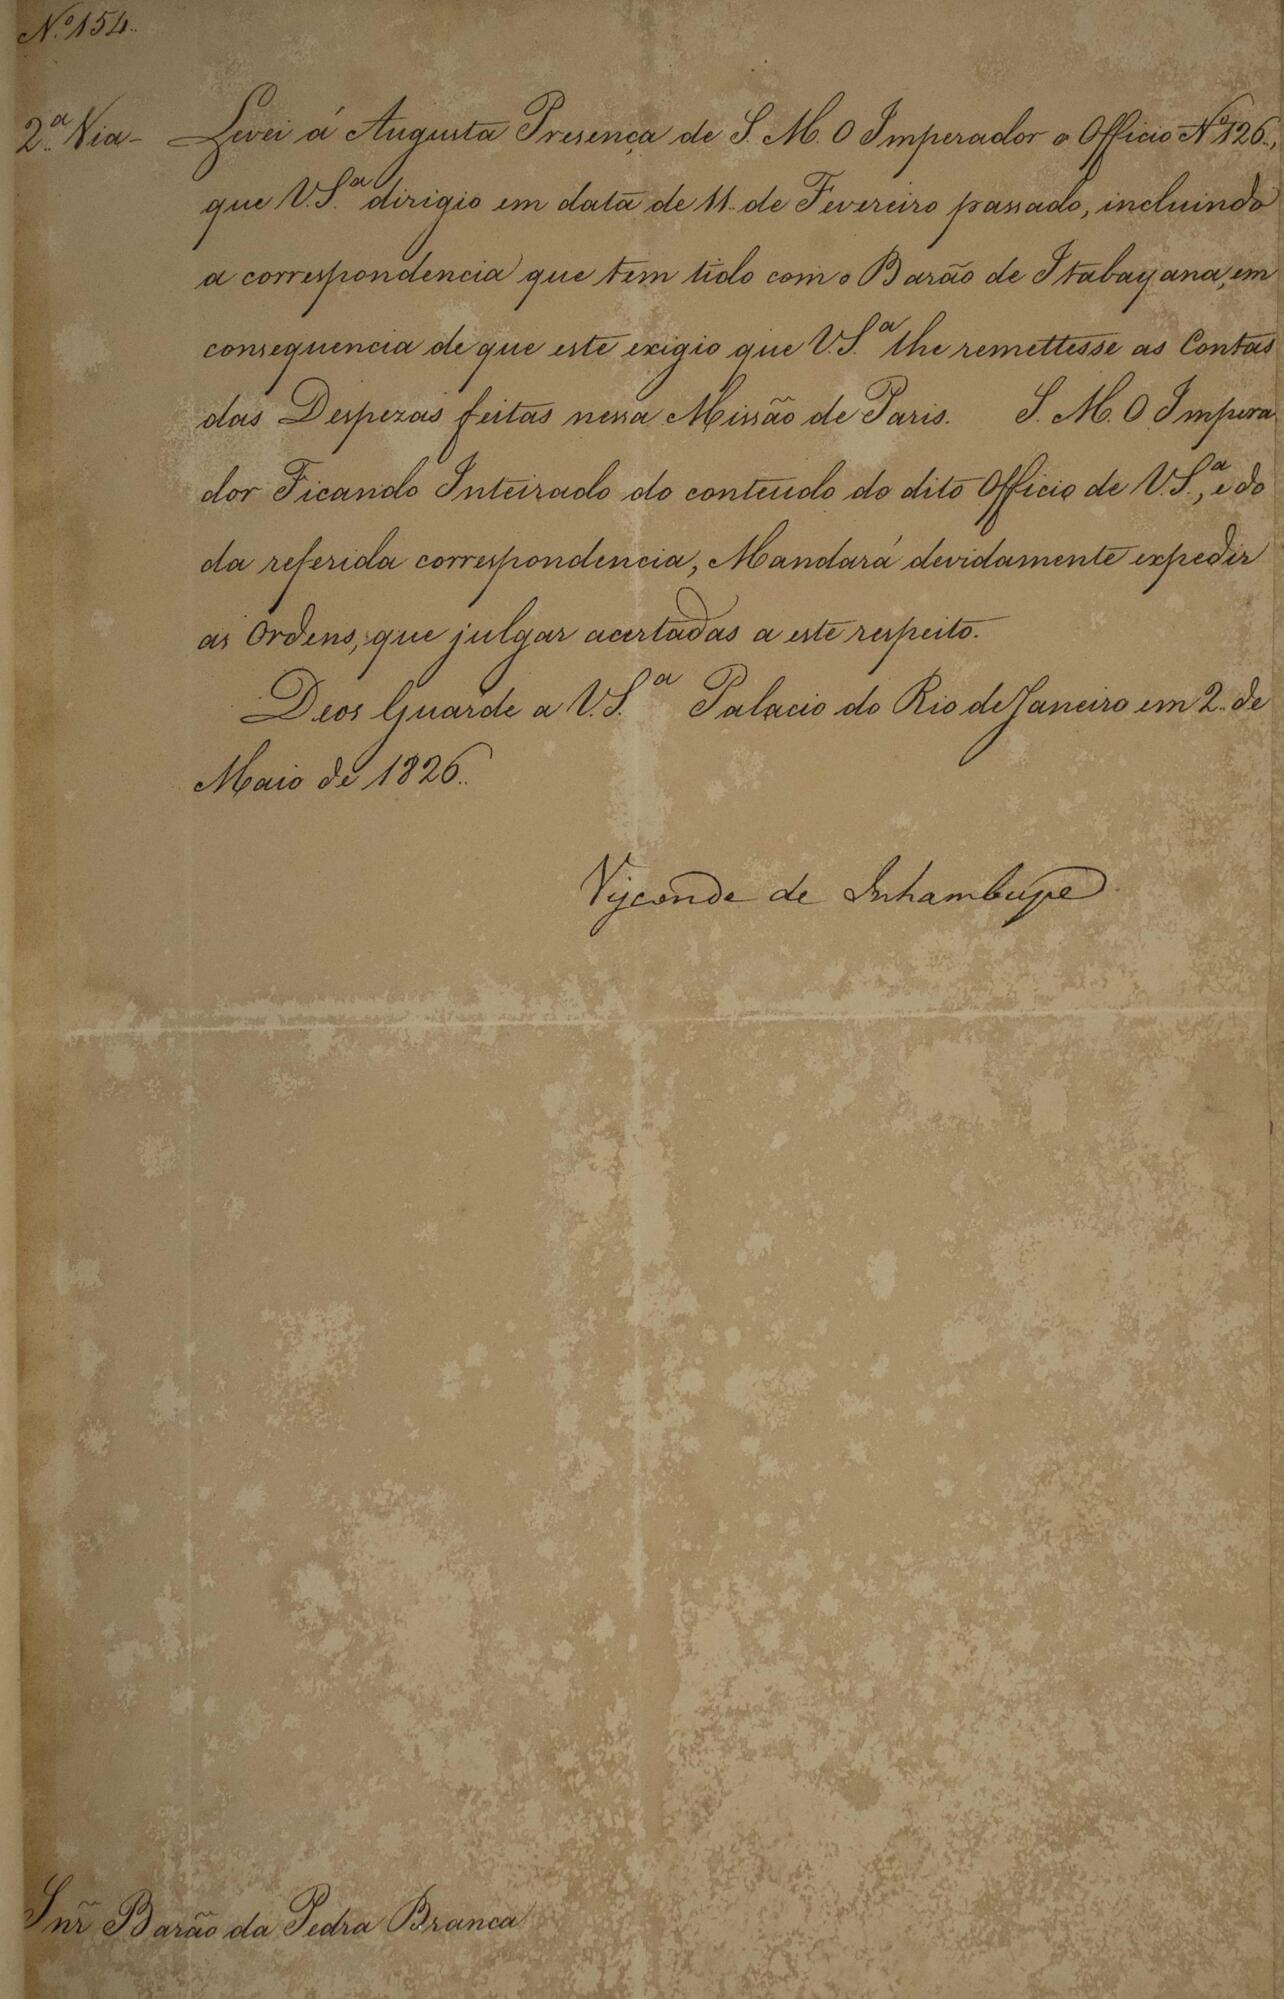 N.º 154.
2.ª Via - Levei á Augusta Presença de S. M. O Imperador o Officio Nº 126.,
que V.S.ª dirigio em data de 11 de Fevereiro passado, incluindo
a correspondencia que tem tido com o Barão de Itabayana, em
consequencia de que este exigio que V.S.ª lhe remettesse as Contas
das Despezas feitas nessa Missão de Paris. S. M. O Impera
dor Ficando Inteirado do conteudo do dito Officio de V.S.ª, e do
da referida correspondencia, Mandará devidamente expedir
as Ordens, que julgar acertadas a este respeito.
Deos Guarde a V.S.ª Palacio do Rio de Janeiro em 2 de
Maio de 1826.
Visconde de Inhambupe
Snr̃ Barão da Pedra Branca